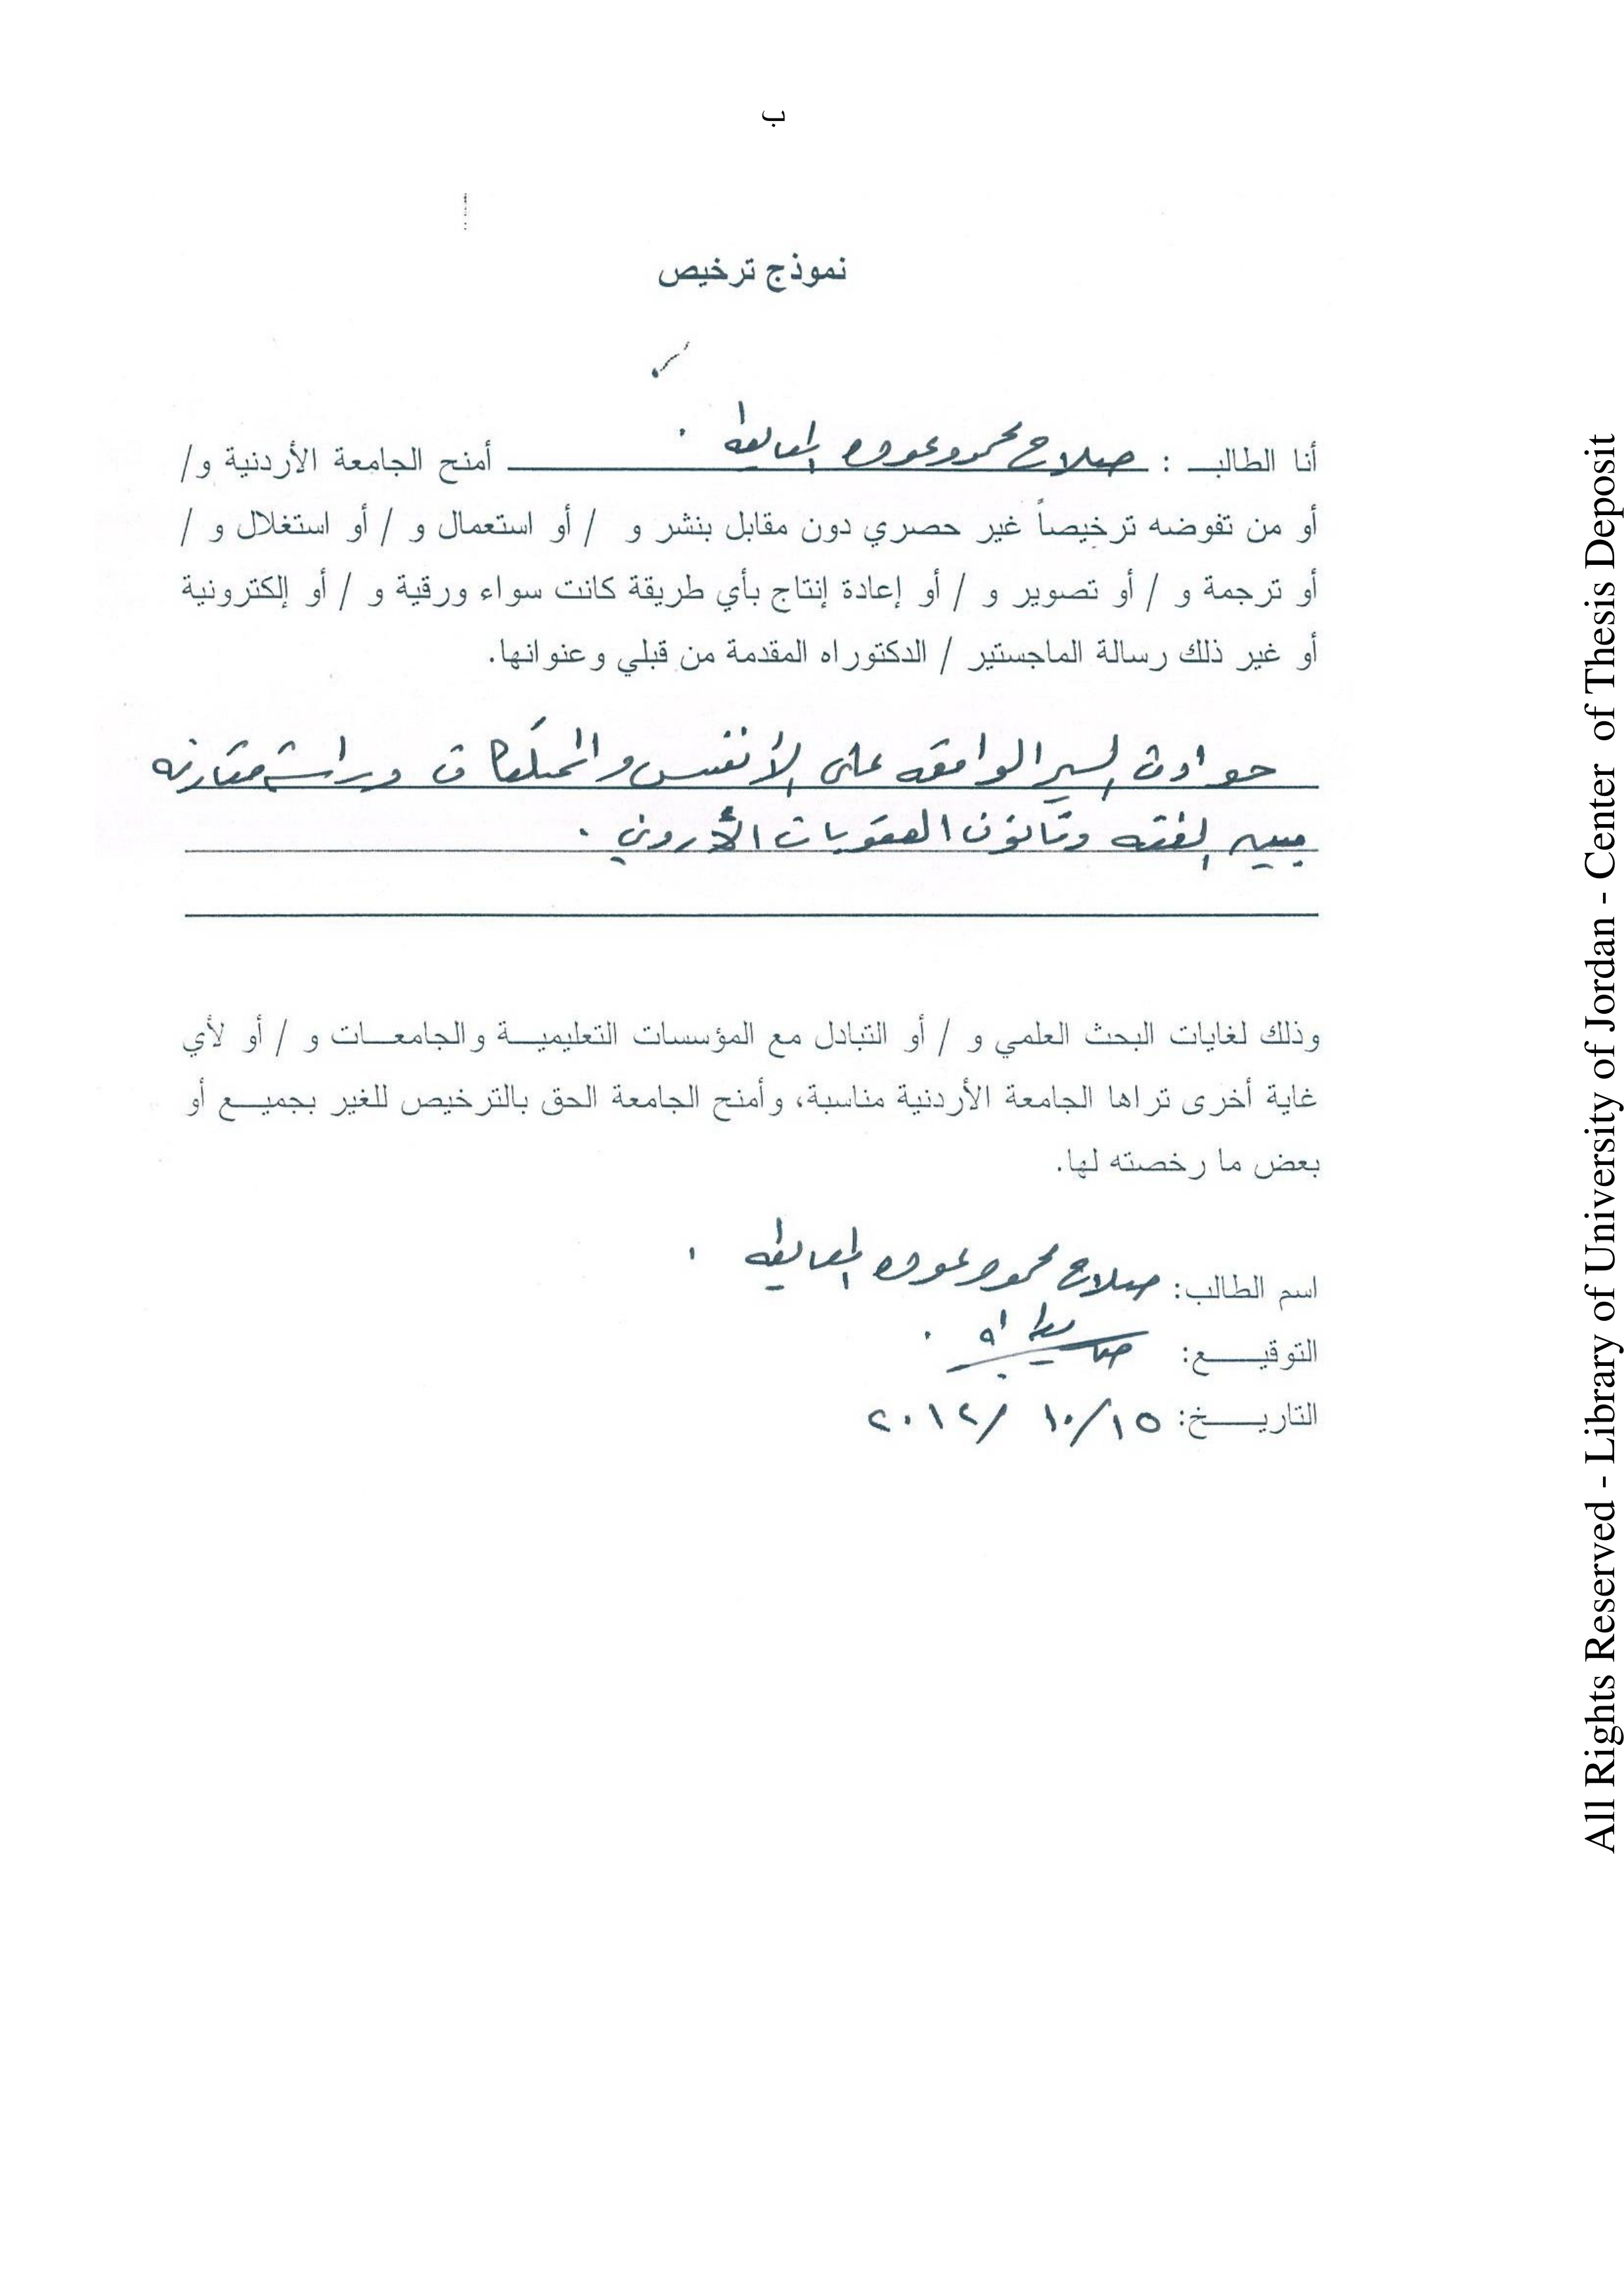 ب
نموذج ترخيص
أنا الطالب : صلاح محمود عوده المعايطه . أمنح الجامعة الأردنية و/
أو من تفوضه ترخيصاً غير حصري دون مقابل بنشر و / أو استعمال و / أو استغلال و /
أو ترجمة و / أو تصوير و / أو إعادة إنتاج بأي طريقة كانت سواء ورقية و / أو إلكترونية
أو غير ذلك رسالة الماجستير / الدكتوراه المقدمة من قبلي وعنوانها.
حوادث السير الواقعه على الأنفس والممتلكات دراسة مقارنه
بين الفقه وقانون العقوبات الأردني .
وذلك لغايات البحث العلمي و / أو التبادل مع المؤسسات التعليمية والجامعات و / أو لأي
غاية أخرى تراها الجامعة الأردنية مناسبة، وأمنح الجامعة الحق بالترخيص للغير بجميع أو
بعض ما رخصته لها.
اسم الطالب: صلاح محمود عوده المعايطه .
التوقيع:
التاريخ: ١٥/١٠/ ٢٠١٢
All Rights Reserved - Library of University of Jordan - Center of Thesis Deposit